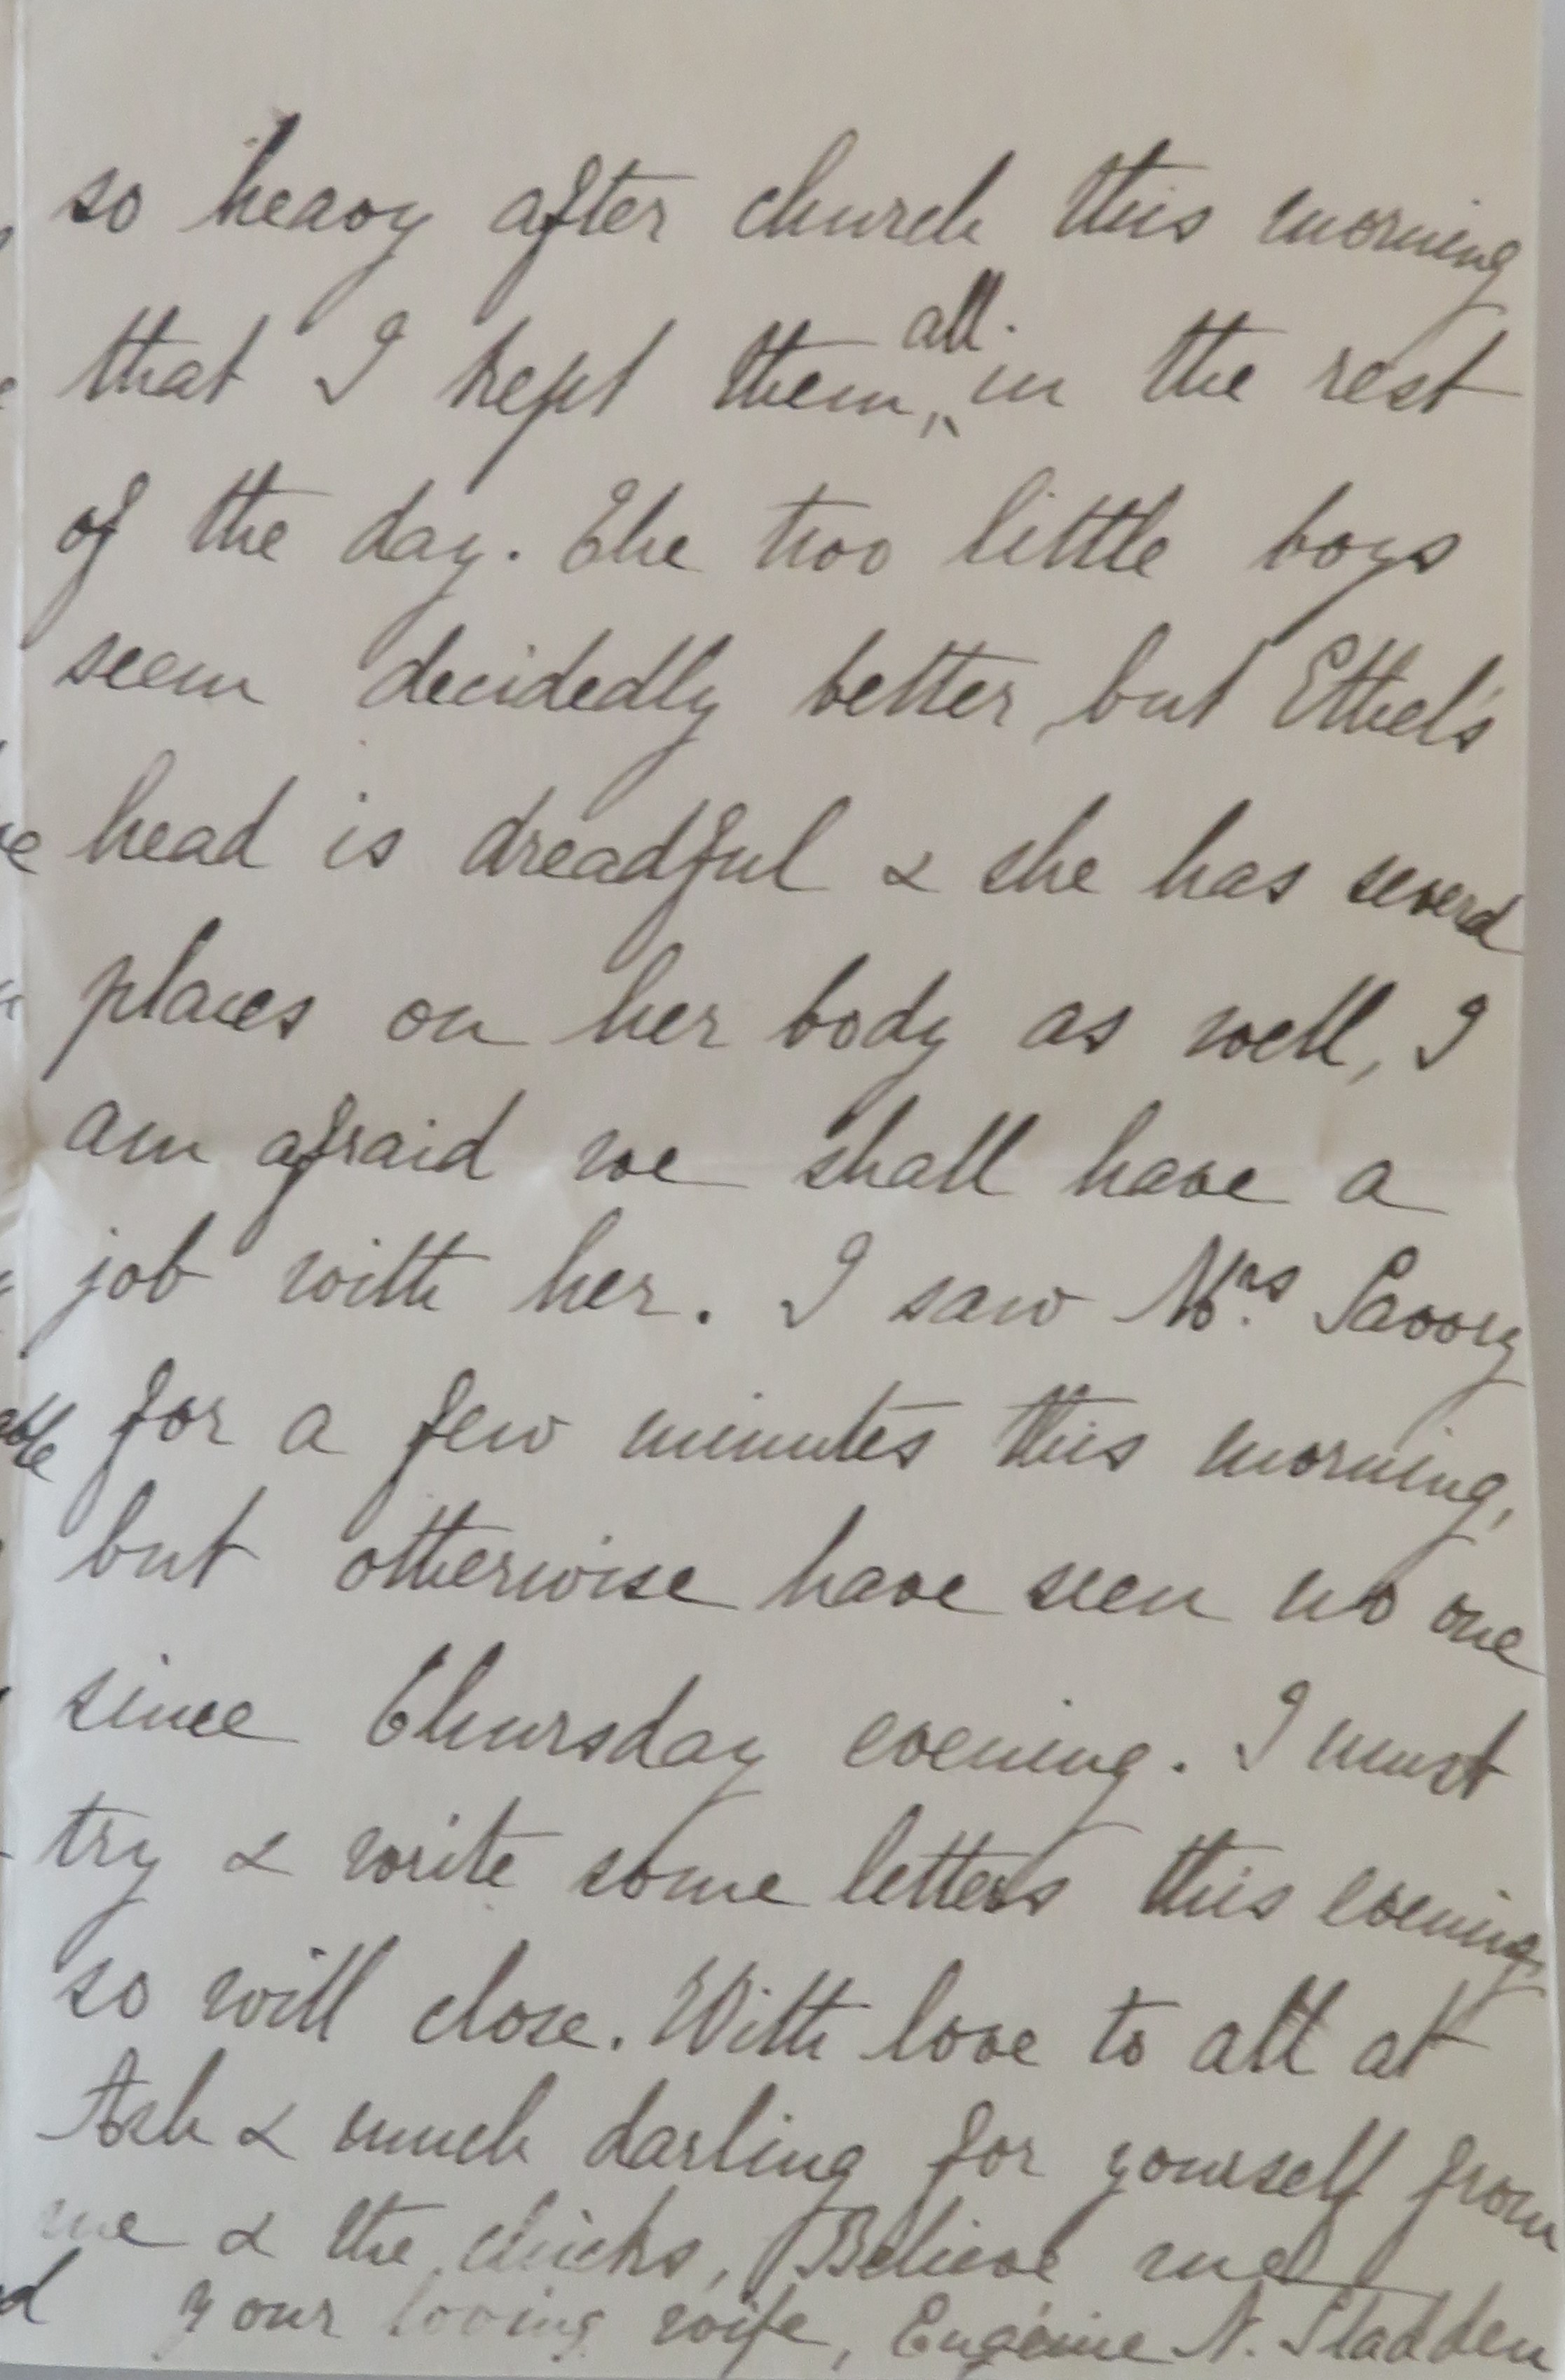 so heavy after church this morning
that I kept them, all in the rest
of the day. The two little boys
seem decidedly better, but Ethel's
head is dreadful & she has several
places on her body as well, I
am afraid we shall have a
job with her. I saw Mrs Savory
for a few minutes this morning,
but otherwise have seen no one
since Thursday evening. I must
try & write some letters this evening
so will close. With love to all at
Ash & much darling for yourself from
me & the chicks, Believe me
your loving wife, Eugénie N. Sladden